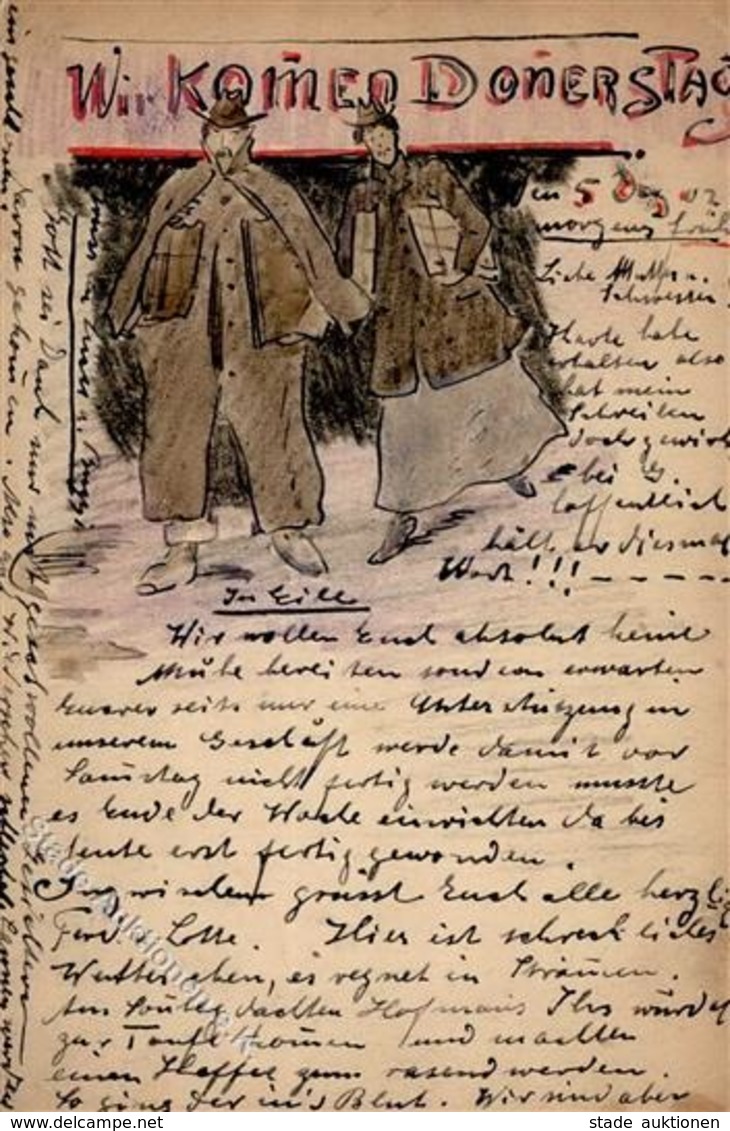 Wir KOMEN DONERSTAG
den 5 Dez. 02
morgens früh
Liebe Mutter u.
Schwester
Karte habe
erhalten also
hat mein
Schreiben
doch gewirkt
bei G.
hoffentlich
hält er diesmal
Wort!!! - - - -
In Eile
Wir wollen Euch absolut keine
Mühe bereiten sondern erwarten
Eurerseits nur eine Unterstützung in
unserem Geschäft werde damit vor
Samstag nicht fertig werden musste
es Ende der Woche einrichten da bis
heute erst fertig geworden.
Inzwischen grüsst Euch alle herzlich
Ferd. u. Lotte. Hier ist schreckliches
Wetter eben, es regnet in Strömen.
dachten Hofmans Ihr würdet
zur Taufe komen und machten
einen zum rasend werden.
So ging der in's Blut. Wir sind aber
Gott sei Dank nur mit
davon gekomen.
stade auktionen